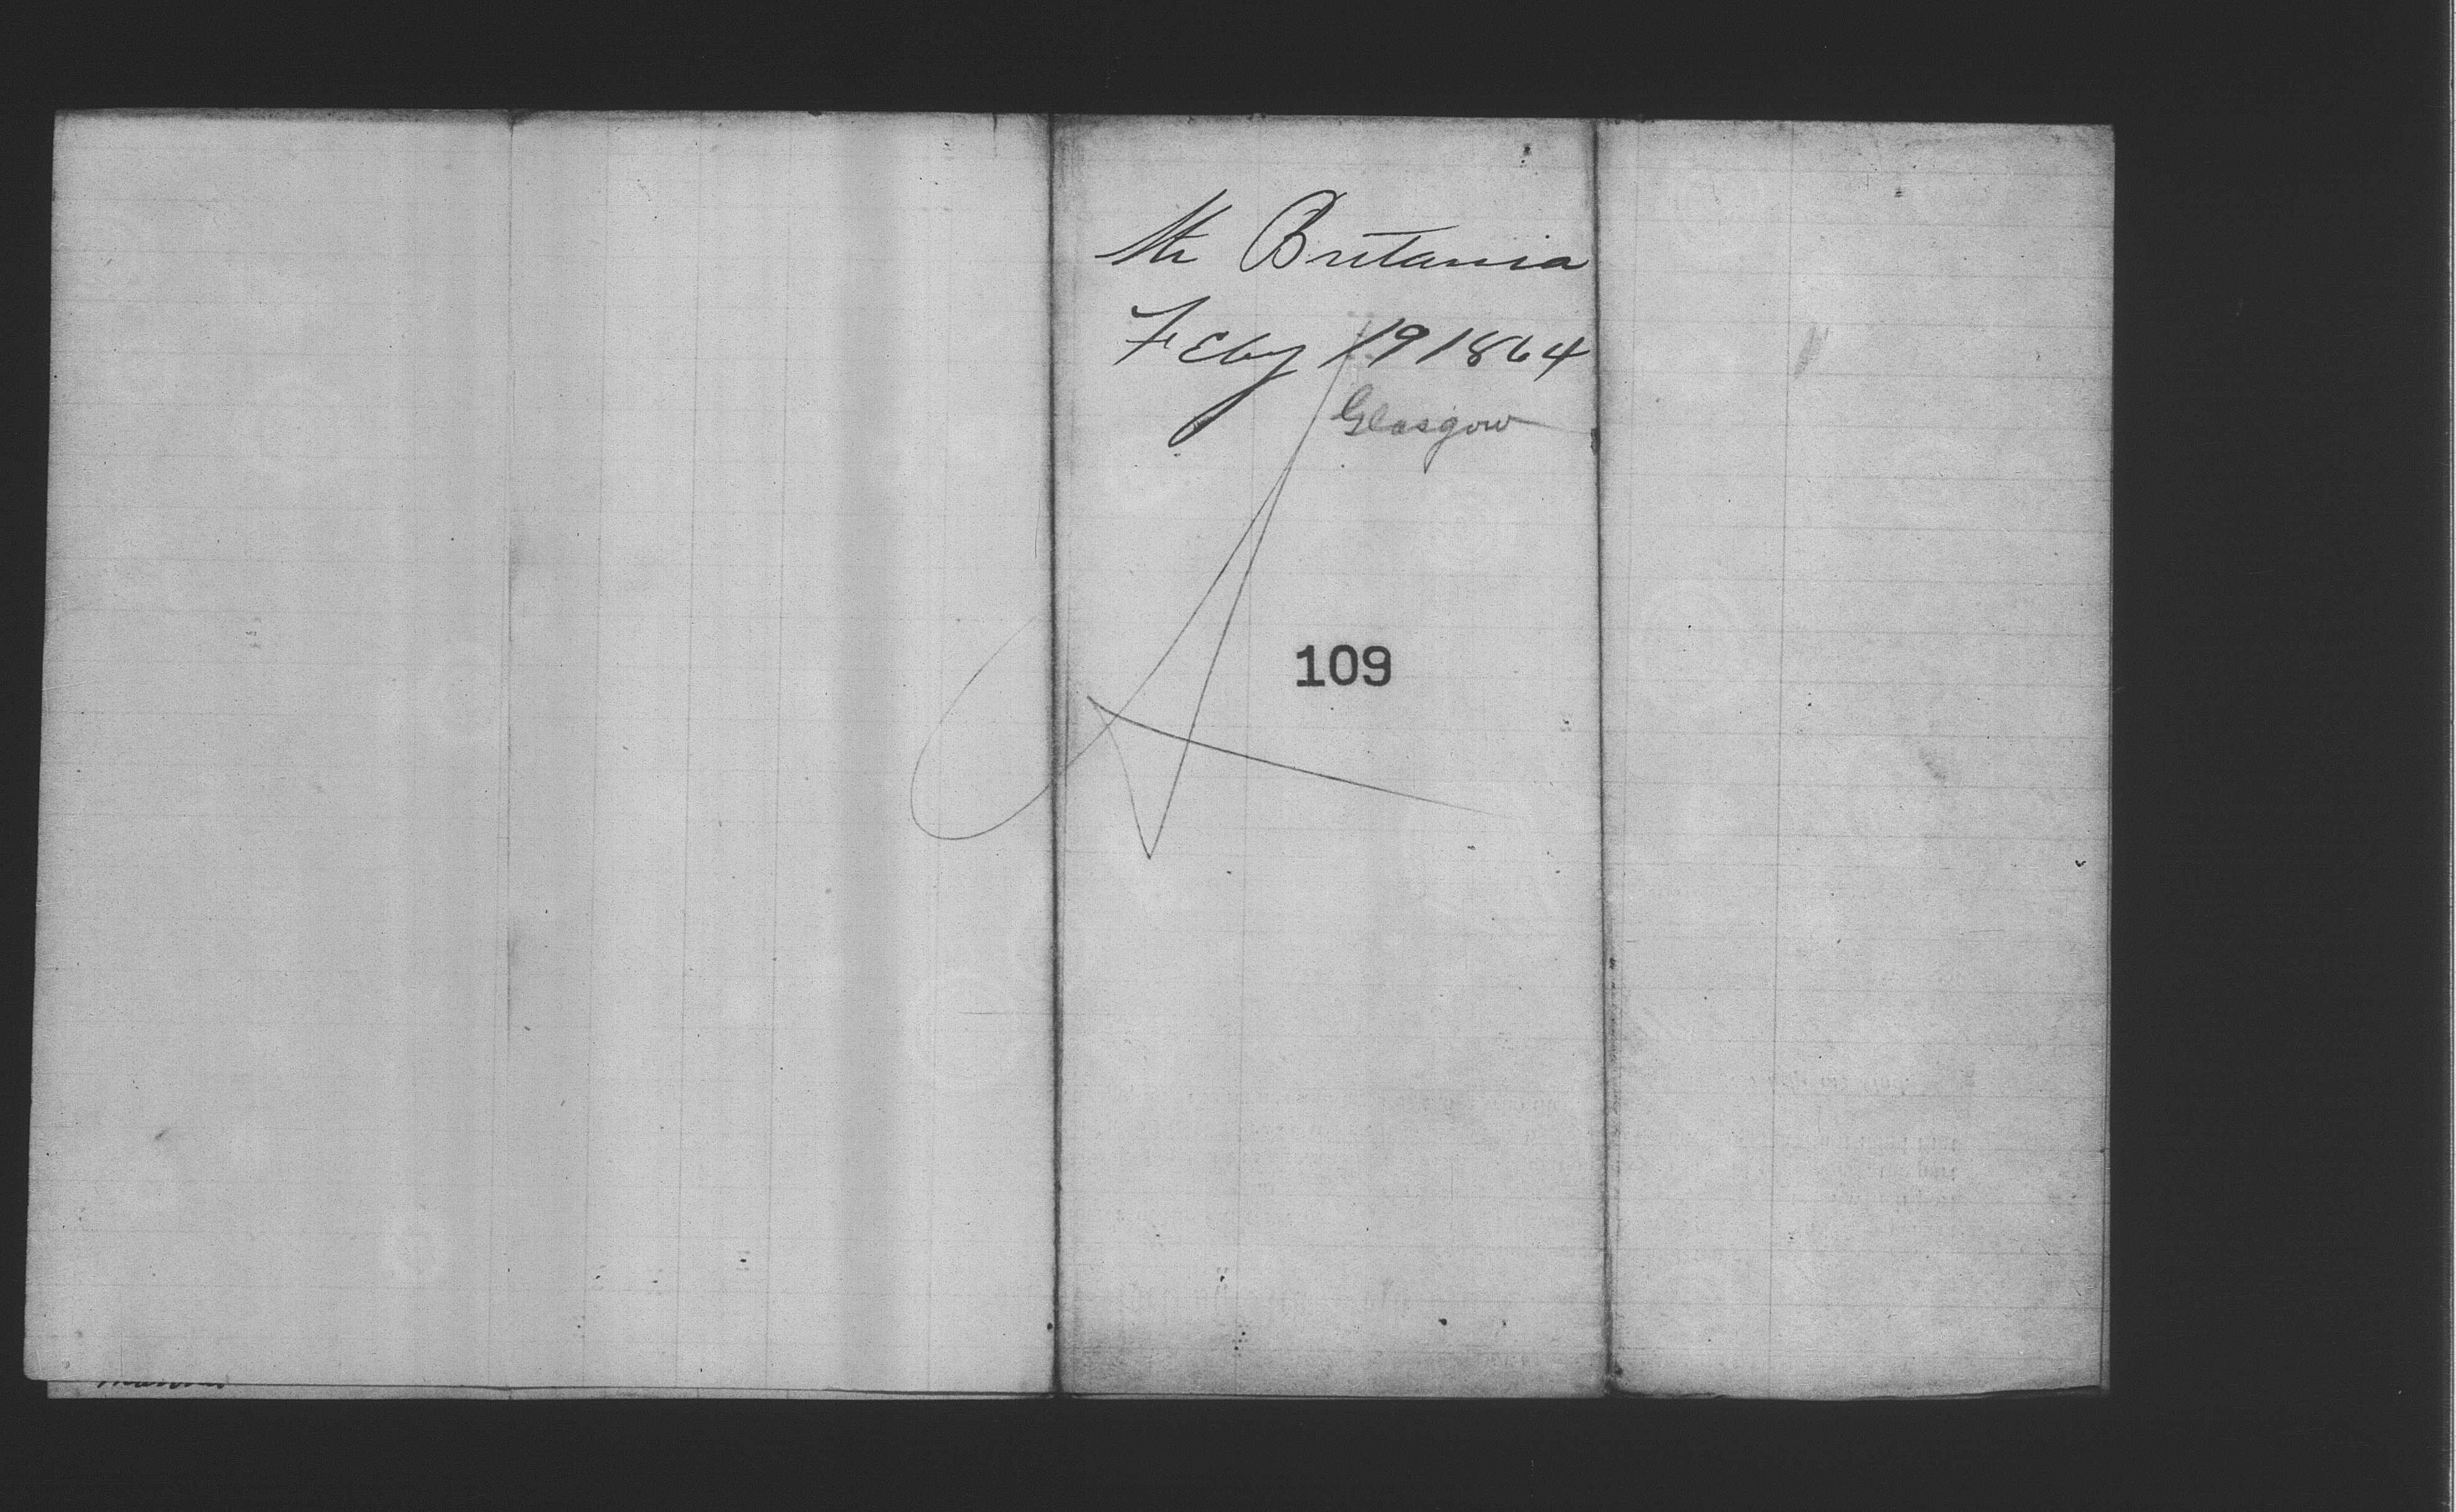 Str Britania
Feby 19 1864
Glasgow
A
109